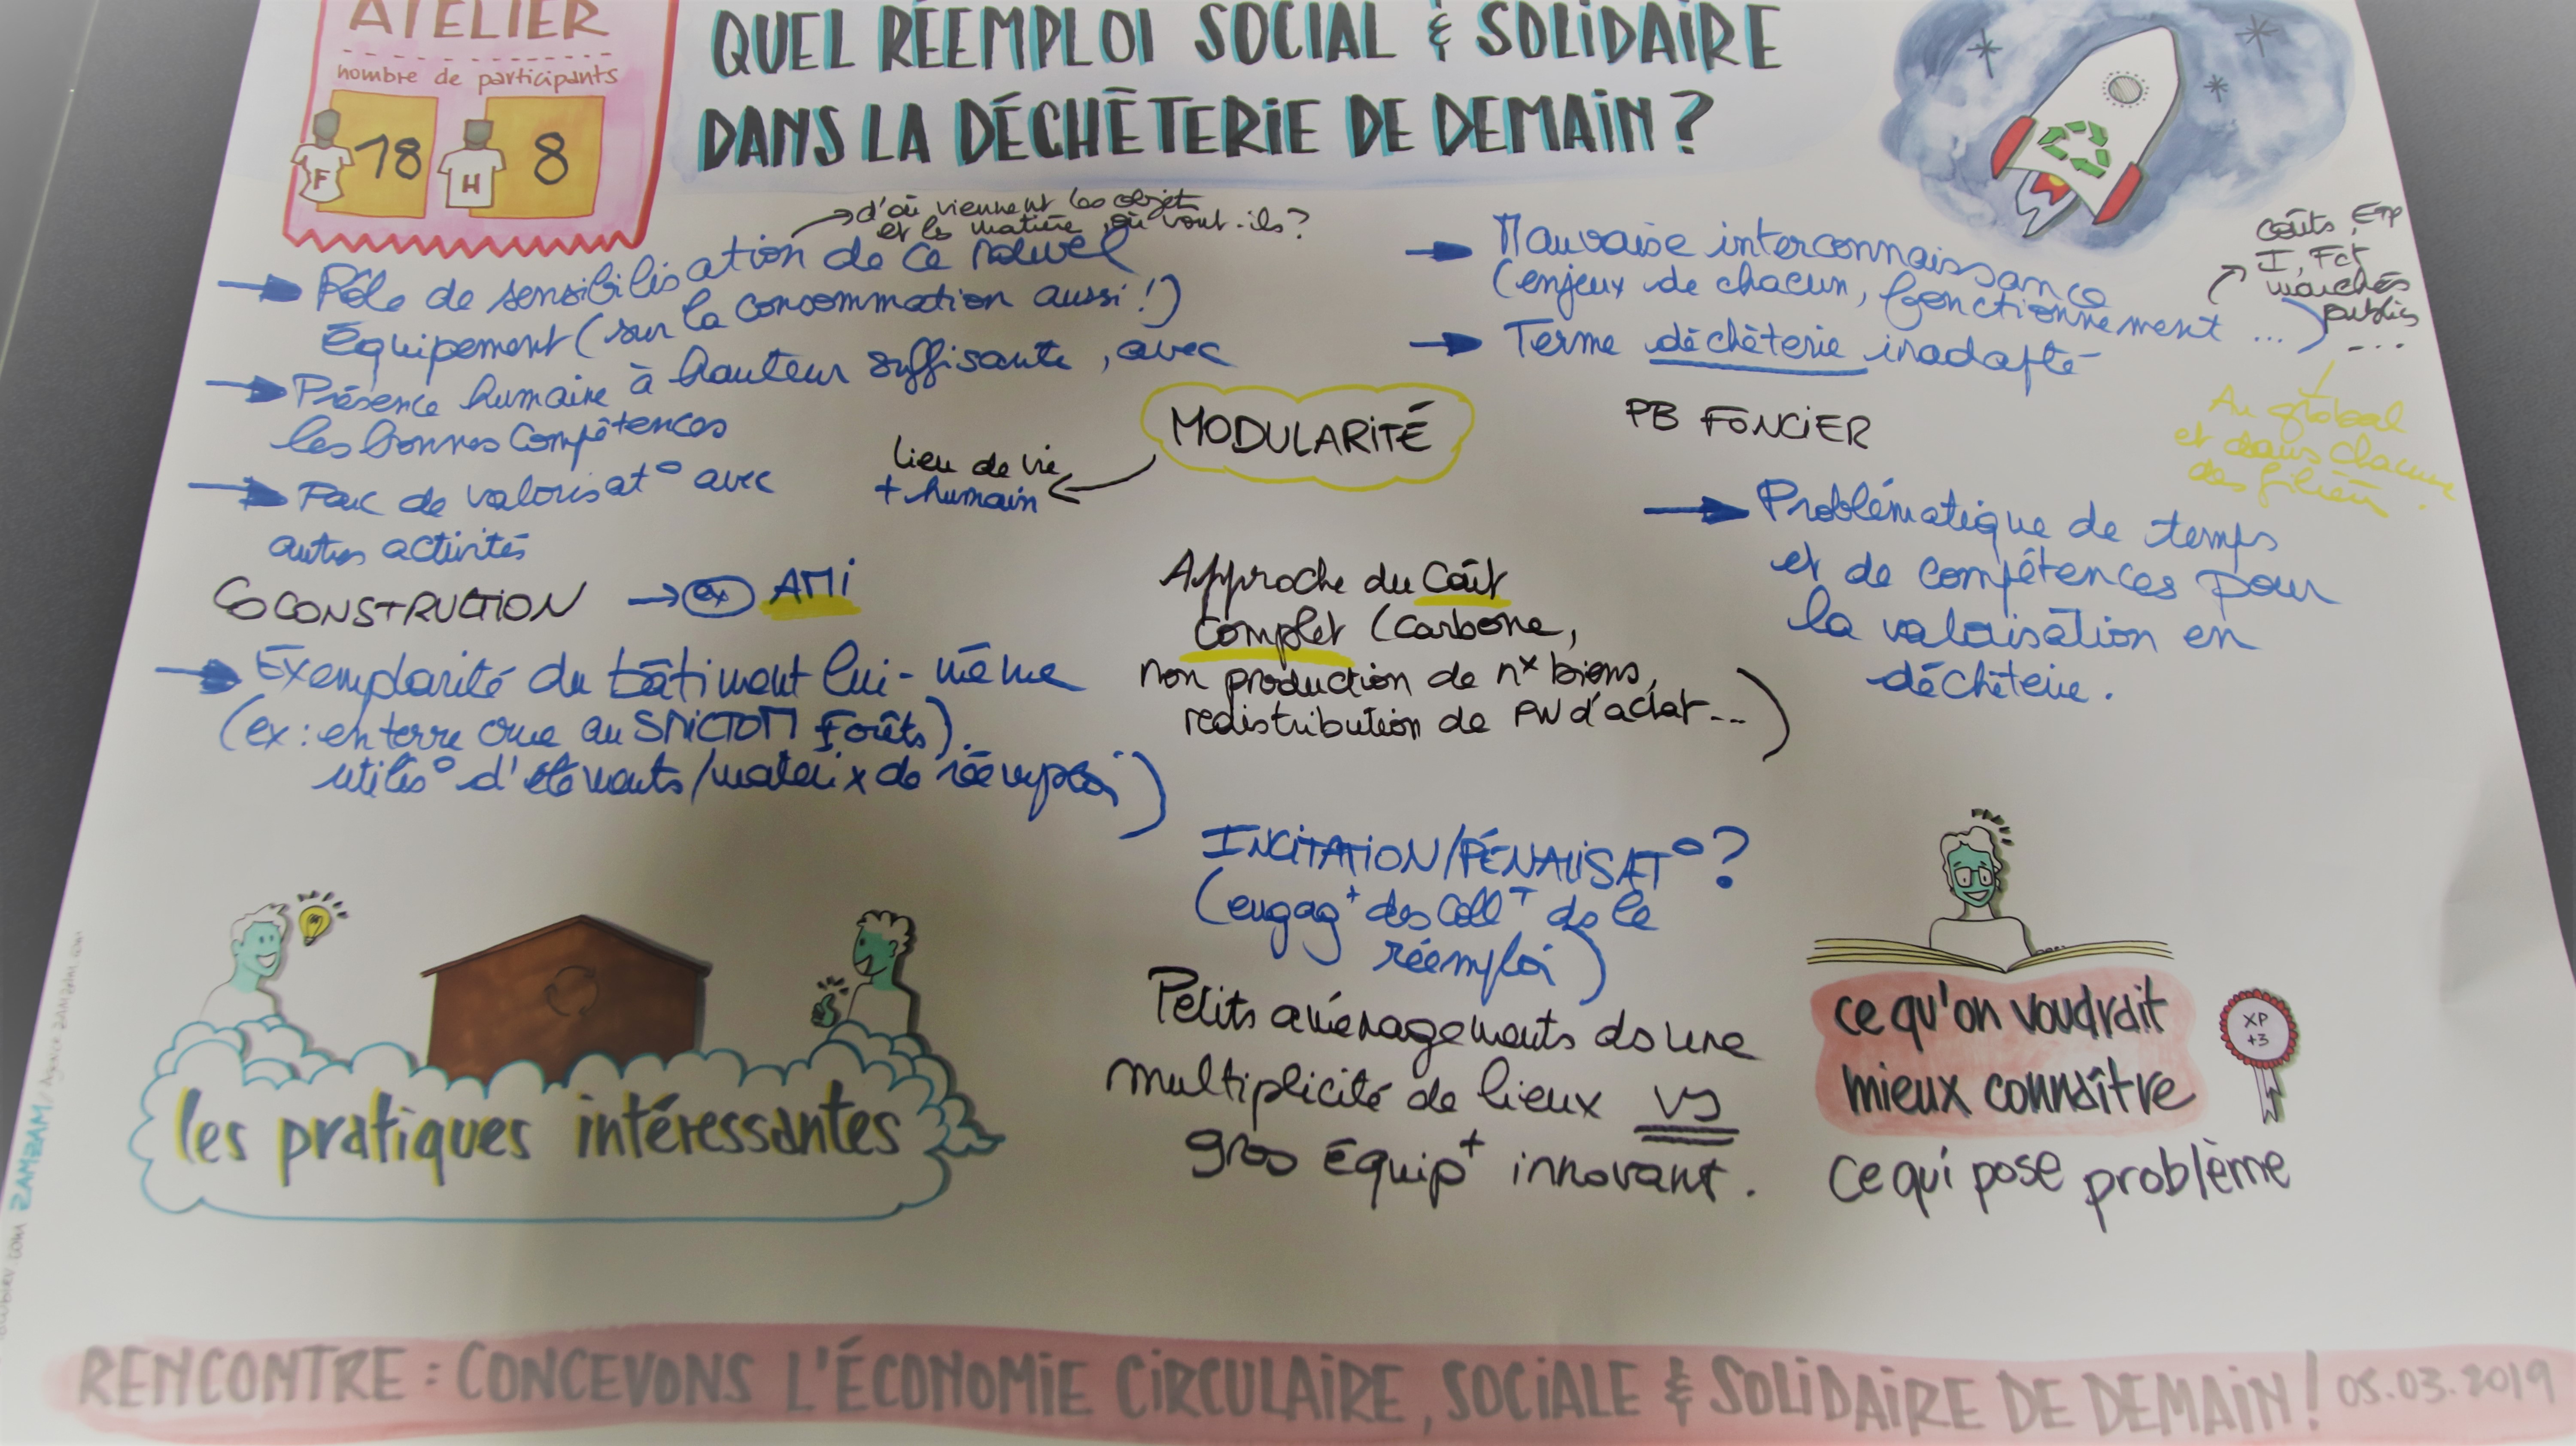 ATELIER
nombre de participants
F 18 H 8
QUEL RÉEMPLOI SOCIAL & SOLIDAIRE
DANS LA DÉCHÈTERIE DE DEMAIN ?
d'où viennent les objets
et les matière, où vont-ils?
→ Pôle de sensibilisation de ce nouvel
Équipement (sur la consommation aussi !)
→ Présence humaine à hauteur suffisante, avec
les bonnes Compétences
→ Parc de valorisat° avec
autres activités
COCONSTRUCTION → ex AMI
→ Exemplarité du bâtiment lui-même
(ex : en terre crue au SMICTOM Forêts).
utilis° d'éléments/matérix de réemploi)
les pratiques intéressantes
MODULARITÉ
lieu de vie
+ humain
Approche du Coût
complet (carbone,
non production de nx biens,
redistribution de PW d'achat...)
INCITATION/PÉNALISAT° ?
(engag+ des CollT ds le
réemploi)
Petits aménagements ds une
multiplicité de lieux VS
gros équip+ innovant.
→ Mauvaise interconnaissance
(enjeux de chacun, fonctionnement ...)
coûts, ETP
I, Fct
marchés
publics
...
Au global
et dans chacune
des filières.
→ Terme déchèterie inadapté
PB FONCIER
→ Problématique de temps
et de compétences pour
la valorisation en
déchèterie.
ce qu'on voudrait
mieux connaître
XP
+3
Ce qui pose problème
RENCONTRE : CONCEVONS L'ÉCONOMIE CIRCULAIRE, SOCIALE & SOLIDAIRE DE DEMAIN ! 05.03.2019
ZAMBAM / Agence